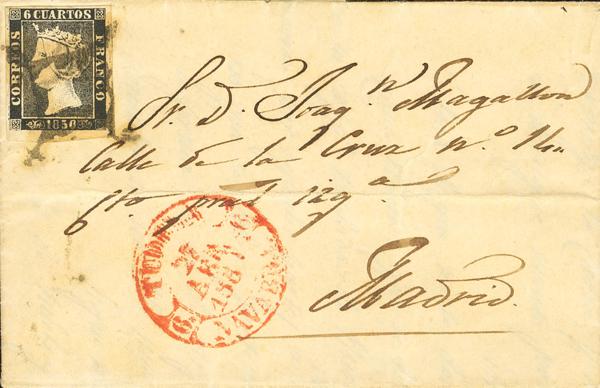 6 CUARTOS
CORREOS
FRANCO
1850
Sr. D. Joaq.n Magallon
Calle de la Cruz n.o
Cto pral izq.a
Madrid.
NAVARRA